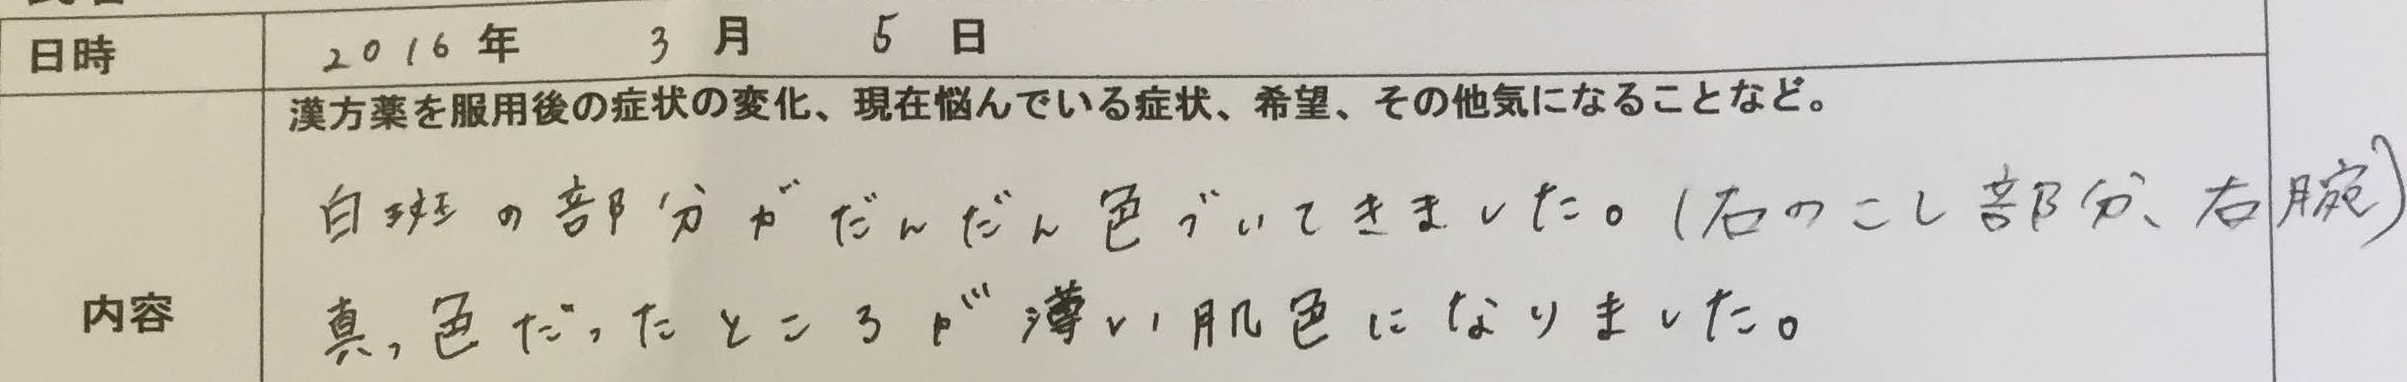 日時 2016年 3月 5日
漢方薬を服用後の症状の変化、現在悩んでいる症状、希望、その他気になることなど。
白斑の部分がだんだん色づいてきました。(右のこし部分、右腕)
内容
真っ色だったところが薄い肌色になりました。